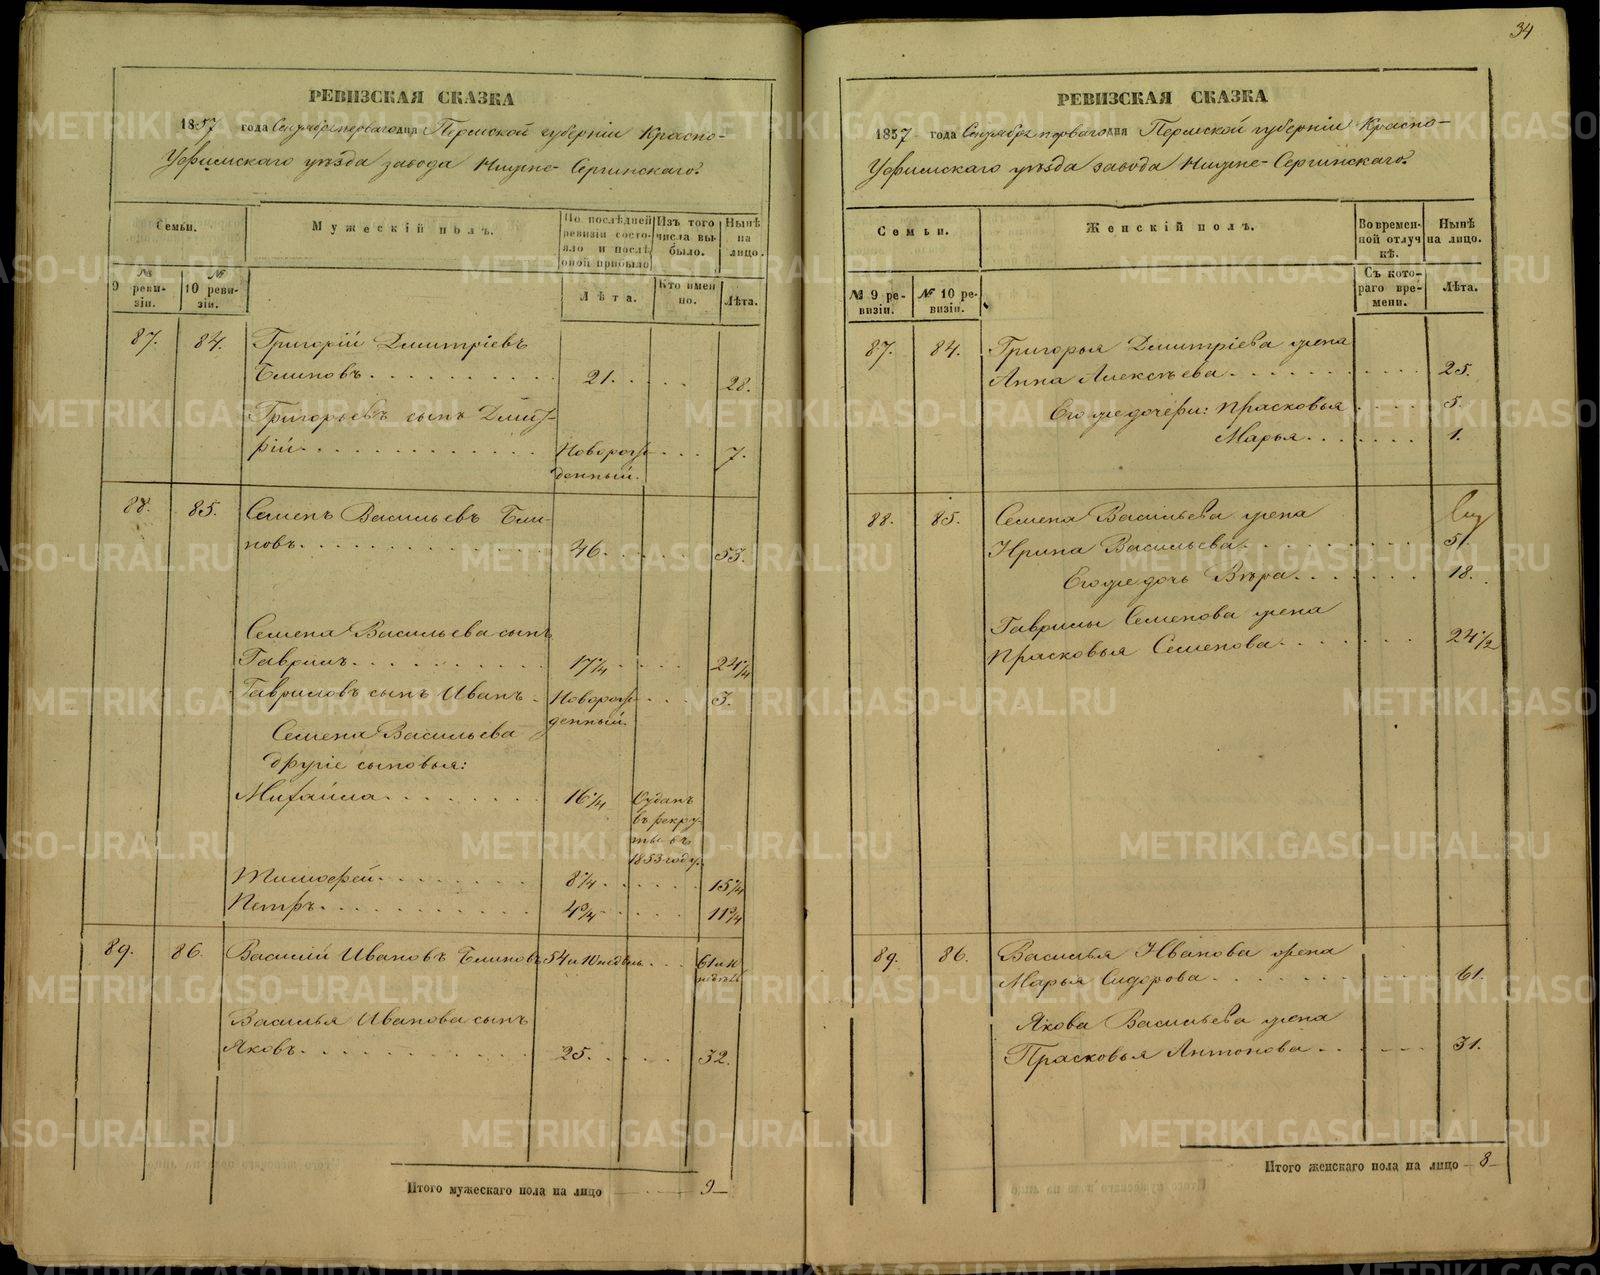 34
РЕВИЗСКАЯ СКАЗКА
1857 года Сентября перваго дня Пермской губерніи Красно-
Уфимскаго уѣзда завода Нижне-Сергинскаго.
Семьи.
Мужескій полъ.
По послѣдней ревизіи состояло и послѣ оной прибыло
Изъ того числа выбыло.
Нынѣ на лицо.
№ 9 ревизіи.
№ 10 ревизіи.
Лѣта.
Кто имено.
Лѣта.
87. 84. Григорій Дмитріевъ
Блиновъ 21. 28.
Григорьевъ сынъ Дмит-
рій Новорож- 7.
денный.
88. 85. Семенъ Васильевъ Бли-
новъ 46. 53.
Семена Васильева сынъ
Гаврилъ 17¼ 24¼
Гавриловъ сынъ Иванъ Новорож- 3.
денный.
Семена Васильева
другіе сыновья:
Михайла 16¼ Отданъ
въ рекру-
ты въ
1853 году.
Тимофей 8¼ 15¼
Петръ 4¾ 11¾
89. 86. Василій Ивановъ Блиновъ 54 и 10 недѣль 61 и 10
недѣль
Василья Иванова сынъ
Яковъ 25. 32.
Итого мужескаго пола на лицо 9
РЕВИЗСКАЯ СКАЗКА
1857 года Сентября перваго дня Пермской губерніи Красно-
Уфимскаго уѣзда завода Нижне-Сергинскаго.
Семьи.
Женскій полъ.
Во временной отлучкѣ.
Нынѣ на лицо.
№ 9 ревизіи.
№ 10 ревизіи.
Съ котораго времени.
Лѣта.
87. 84. Григорья Дмитріева жена
Анна Алексѣева 25.
Его же дочери: Прасковья 5.
Марья 1.
88. 85. Семена Васильева жена
Ирина Васильева 51.
Его же дочь Вѣра 18.
Гаврилы Семенова жена
Прасковья Семенова 24½
89. 86. Василья Иванова жена
Марья Сидорова 61.
Якова Васильева жена
Прасковья Антонова 31.
Итого женскаго пола на лицо 8
METRIKI.GASO-URAL.RU